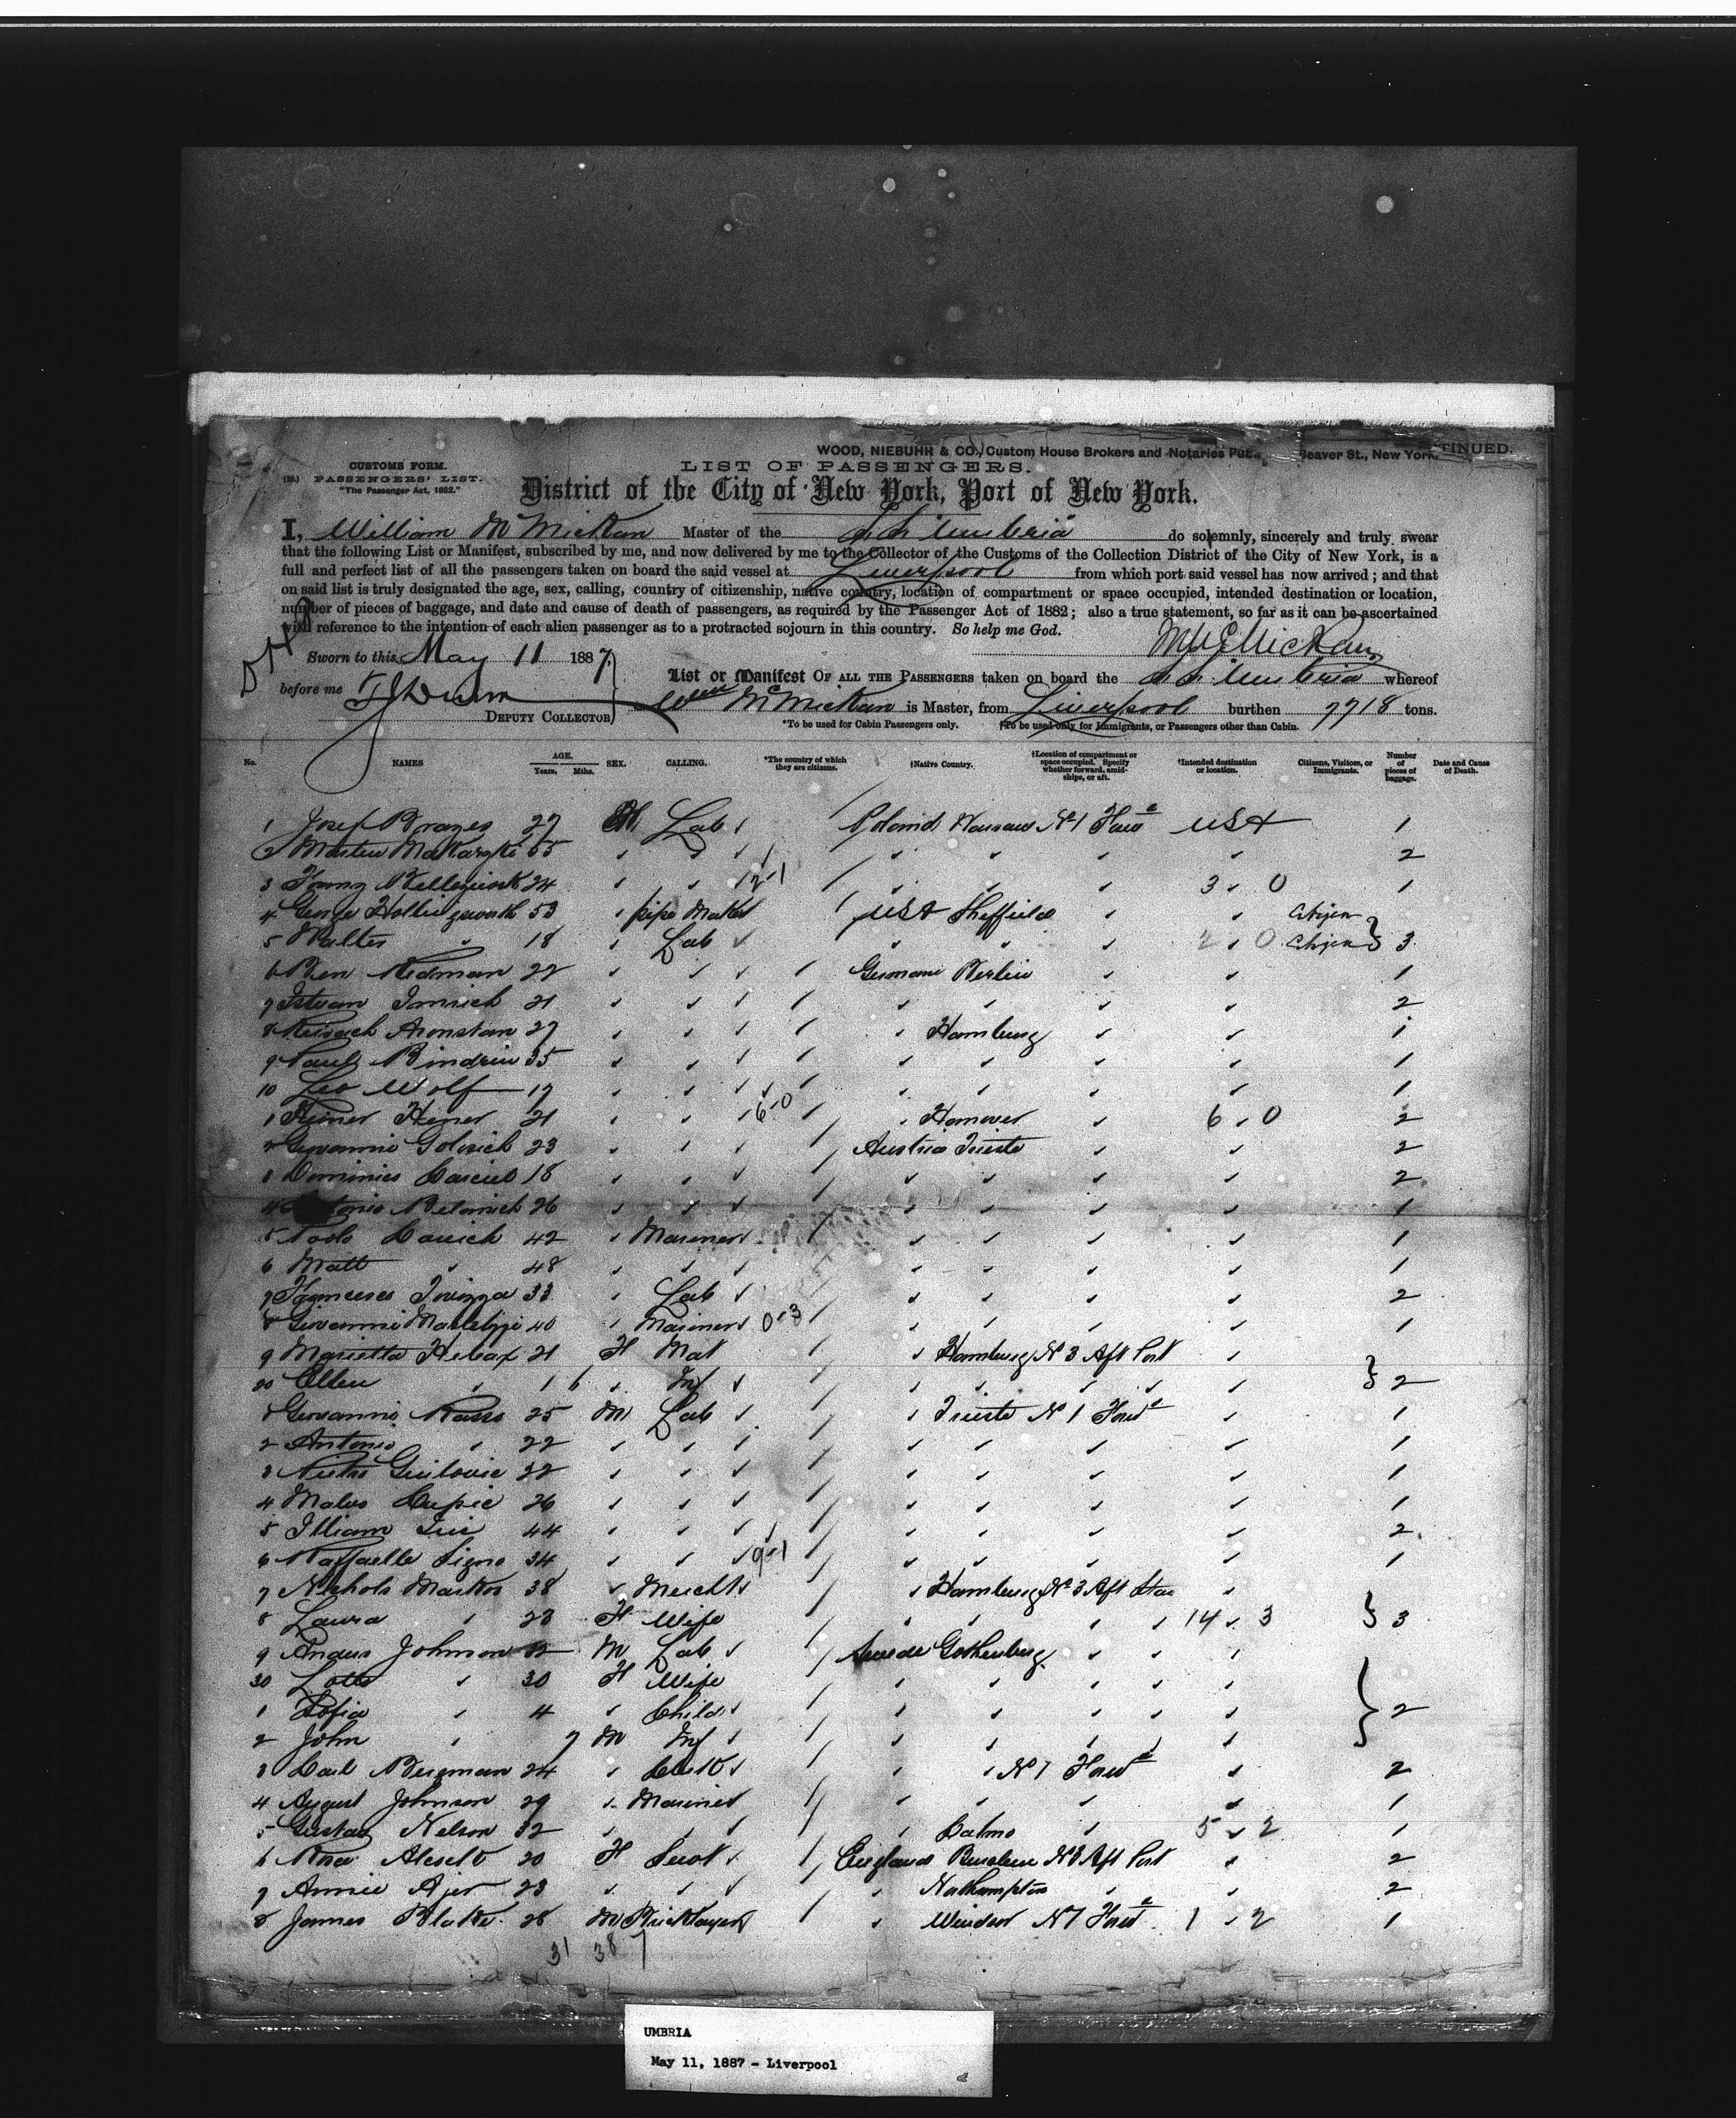 WOOD, NIEBUHR & CO., Custom House Brokers and Notaries Pub. Beaver St., New York. TINUED.
CUSTOMS FORM.
LIST OF PASSENGERS.
PASSENGERS' LIST.
"The Passenger Act, 1882."
District of the City of New York, Port of New York.
I, William McMickan Master of the S.S. Umbria do solemnly, sincerely and truly swear
that the following List or Manifest, subscribed by me, and now delivered by me to the Collector of the Customs of the Collection District of the City of New York, is a
full and perfect list of all the passengers taken on board the said vessel at Liverpool from which port said vessel has now arrived; and that
on said list is truly designated the age, sex, calling, country of citizenship, native country, location of compartment or space occupied, intended destination or location,
number of pieces of baggage, and date and cause of death of passengers, as required by the Passenger Act of 1882; also a true statement, so far as it can be ascertained
with reference to the intention of each alien passenger as to a protracted sojourn in this country. So help me God.
Wm McMickan
Sworn to this May 11 1887
before me
DEPUTY COLLECTOR
List or Manifest OF ALL THE PASSENGERS taken on board the S.S. Umbria whereof
Wm McMickan is Master, from Liverpool burthen 7718 tons.
*To be used for Cabin Passengers only. †To be used only for Immigrants, or Passengers other than Cabin.
No. NAMES AGE. Years. Mths. SEX. CALLING. *The country of which they are citizens. †Native Country. †Location of compartment or space occupied. Specify whether forward, amidships, or aft. †Intended destination or location. Citizens, Visitors, or Immigrants. Number of pieces of baggage. Date and Cause of Death.
1 Josef 27 M Lab Poland Warsaw No 1 Forwd USA 1
2 55 2
3 24 2-1 3 0 1
4 George Hollingsworth 53 pipe Maker USA Sheffield Citizen
5 Walter 18 Lab 2 0 Citizen 3
6 Ben Redman 22 Germany Berlin 1
7 Istvan 21 2
8 Aronstan 27 Hamburg 1
9 Paul 35 1
10 Leo Wolf 19 1
1 Heiner 21 6-0 Hanover 6 0 2
2 Giovanni 23 Austria Trieste 2
3 18 2
4 26 1
5 42 Mariner 1
6 Matt 48 1
7 33 Lab 2
8 Giovanni 40 Mariner 0-3 1
9 Marietta 21 F Mat Hamburg No 3 Aft Port
20 Ellen 1 6 Inf 2
1 Giovanni 25 M Lab Trieste No 1 Forwd 1
2 Antonio 22 1
3 22 1
4 26 1
5 44 2
6 Raffaelle 34 9-1 1
7 Nichols 38 Mercht Hamburg No 3 Aft Star
8 Laura 28 F Wife 14 3 3
9 Johnson 32 M Lab Swede Gothenburg
30 Lotte 30 F Wife
1 Sofia 4 Child 2
2 John 7 M Inf
3 Carl Bergman 24 Clerk No 1 Forwd 2
4 August Johnson 29 Mariner 1
5 Gustaf Nelson 32 5 2 1
6 Rosa 20 F Servt England No 3 Aft Port 2
7 Annie 23 Northampton 2
8 James Blake 28 M Bricklayer Windsor No 1 Forwd 1 2 1
31 38 7
UMBRIA
May 11, 1887 - Liverpool